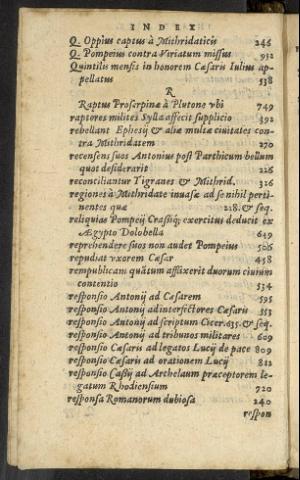 INDEX
Q. Oppius captus à Mithridaticis 246
Q. Pompeius contra Viriatum missus 932
Quintilis mensis in honorem Cæsaris Iulius ap-
pellatus 538
R
Raptus Proserpinæ à Plutone vbi 749
raptores milites Sylla affecit supplicio 392
rebellant Ephesij & aliæ multæ ciuitates con-
tra Mithridatem 270
recensens suos Antonius post Parthicum bellum
quot desiderarit 226
reconciliantur Tigranes & Mithrid. 326
regiones à Mithridate inuasæ ad se nihil perti-
nentes quæ 218. & seq.
reliquias Pompeij Crassiq; exercitus deducit ex
Ægypto Dolobella 649
reprehendere suos non audet Pompeius 506
repudiat vxorem Cæsar 458
rempublicam quātum afflixerit duorum ciuium
contentio 534
responsio Antonij ad Cæsarem 595
responsio Antonij ad interfectores Cæsaris 553
responsio Antonij ad scriptum Cicer. 635. & seq.
responsio Antonij ad tribunos militares 609
responsio Cæsaris ad legatos Lucij de pace 809
responsio Cæsaris ad orationem Lucij 812
responsio Cassij ad Archelaum præceptorem le-
gatum Rhodiensium 720
responsa Romanorum dubiosa 240
respon